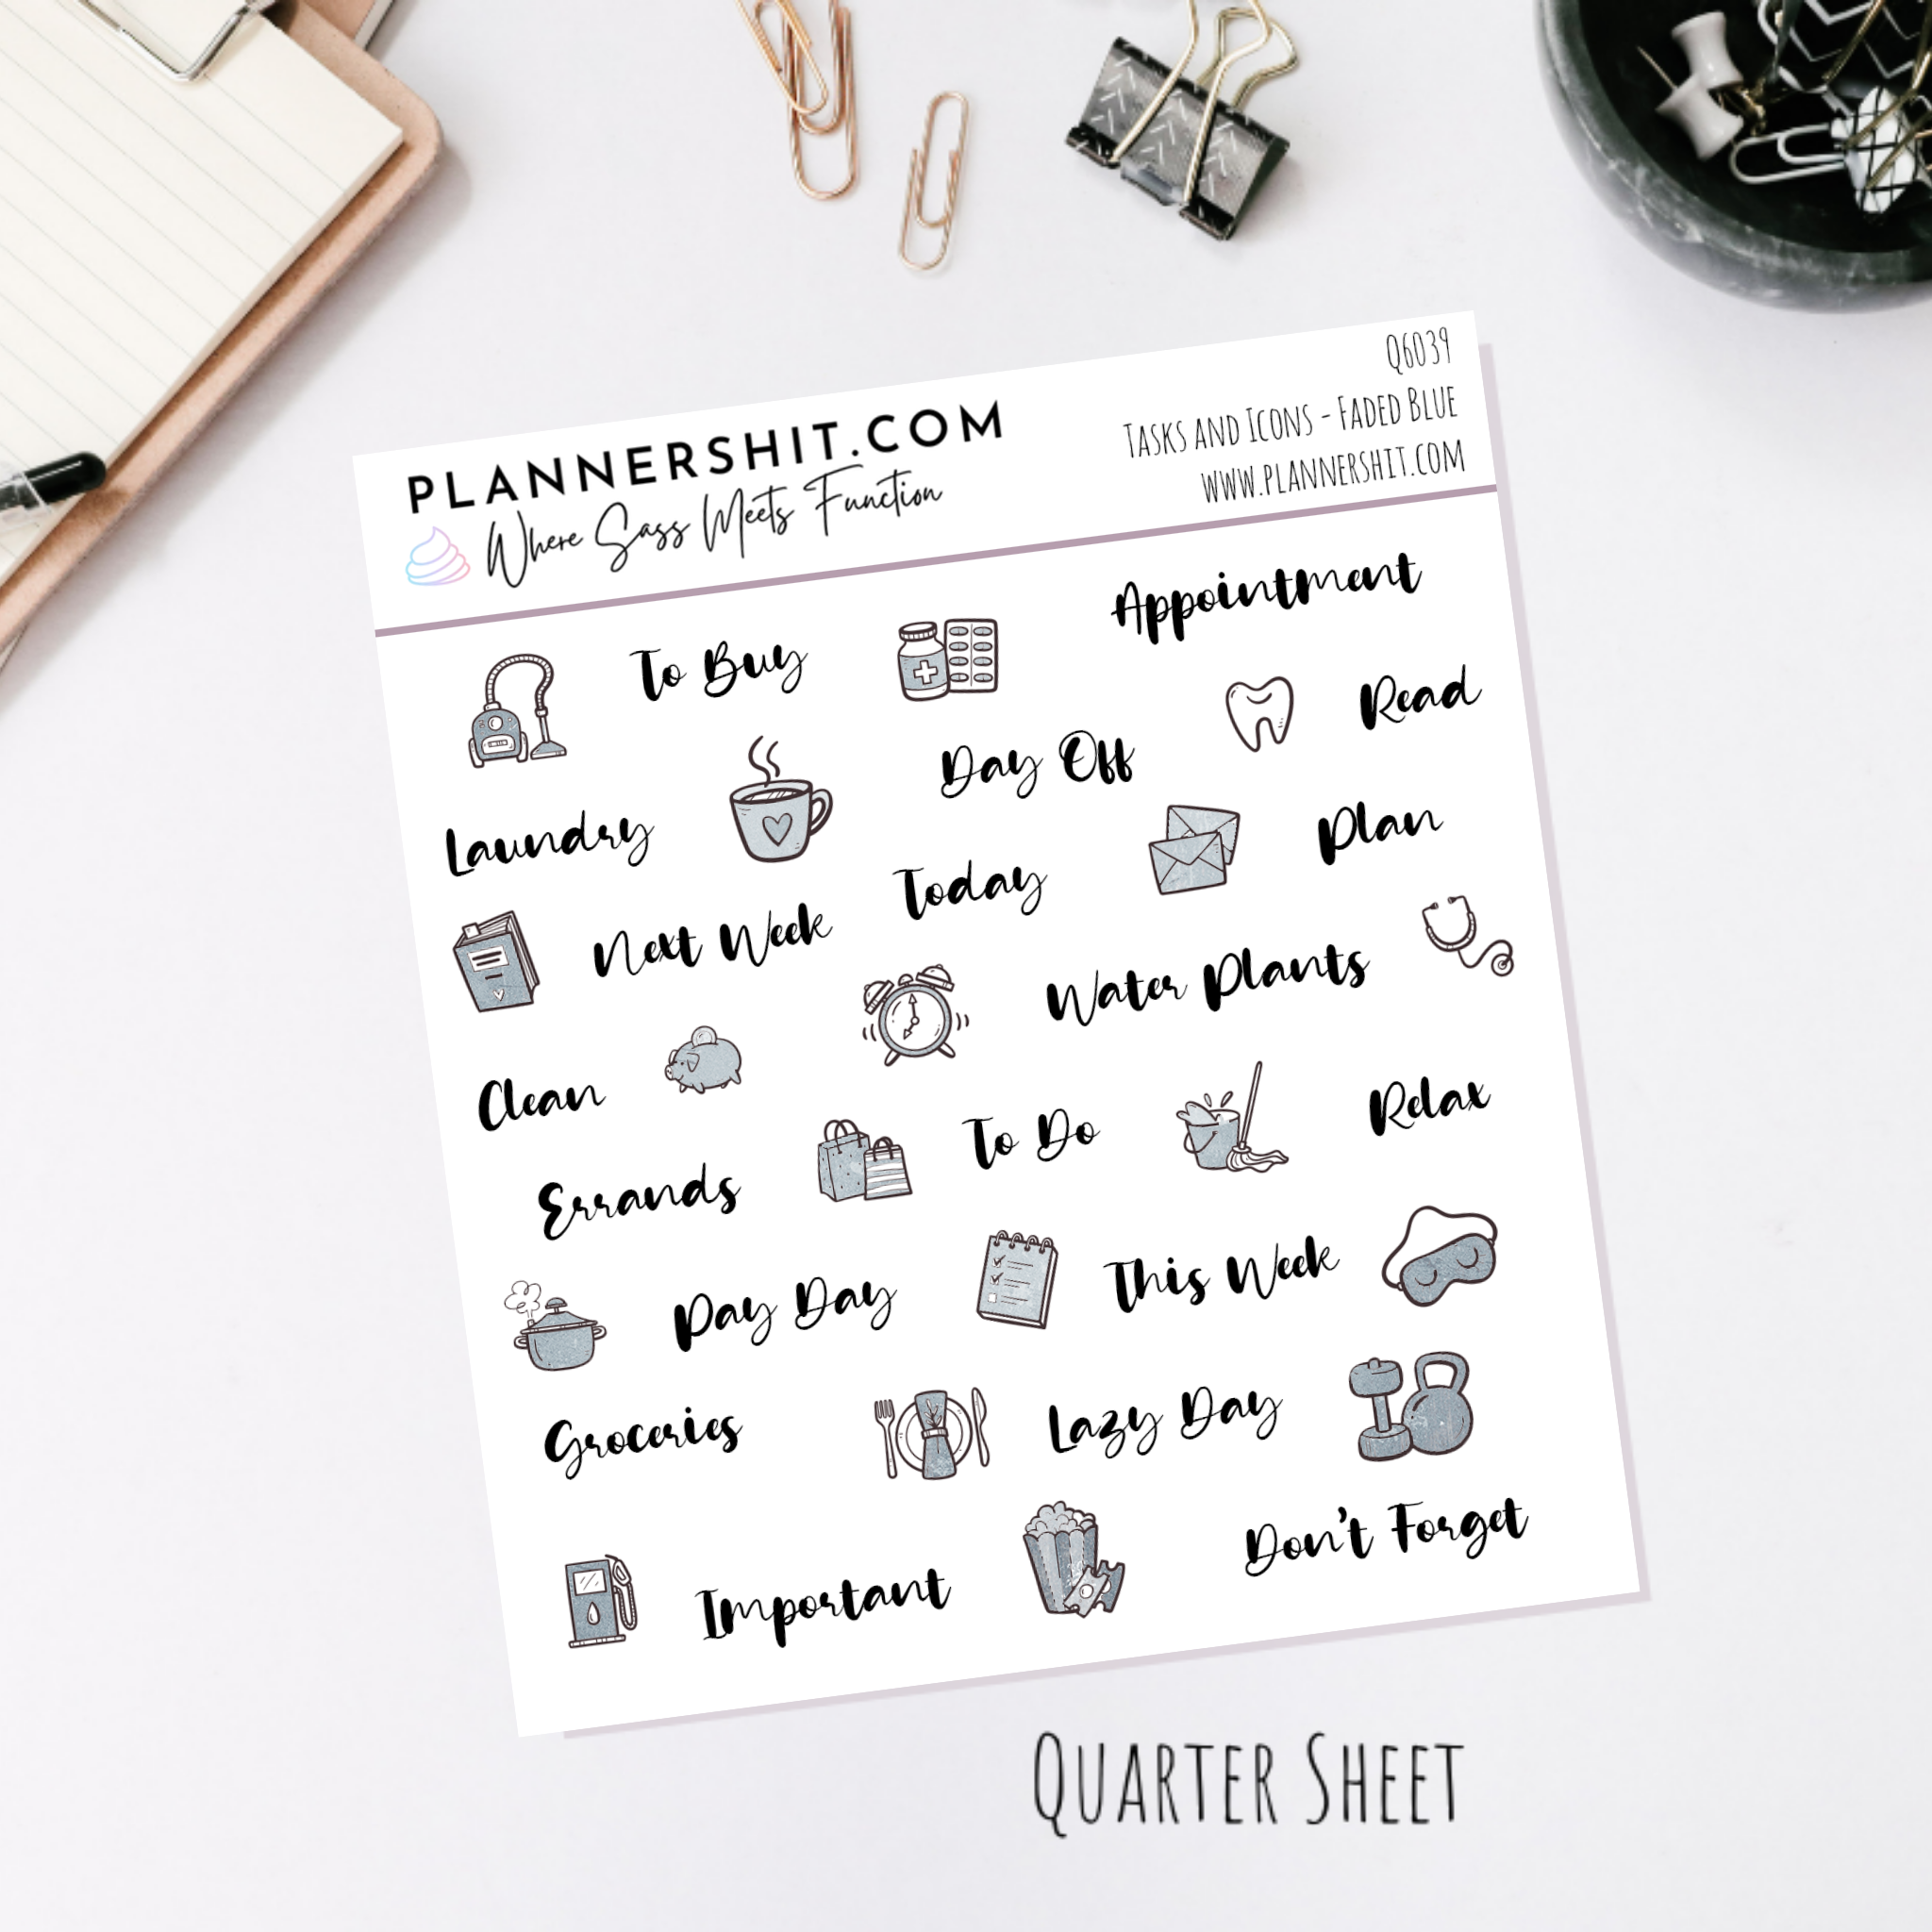 PLANNERSHIT.COM
Where Sass Meets Function
Q6039
Tasks and Icons - Faded Blue
www.plannershit.com
To Buy
Appointment
Read
Day Off
Laundry
Plan
Today
Next Week
Water Plants
Clean
Relax
To Do
Errands
This Week
Pay Day
Lazy Day
Groceries
Don't Forget
Important
Quarter Sheet